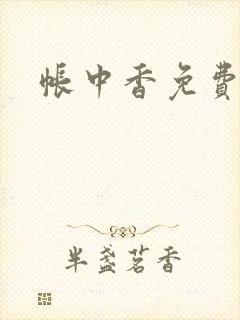 帐中香免费
半盏茗香